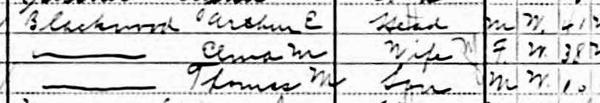 Blackwood Arthur E Head M W 41
— M Wife F W 38
— Thomas M Son M W 10